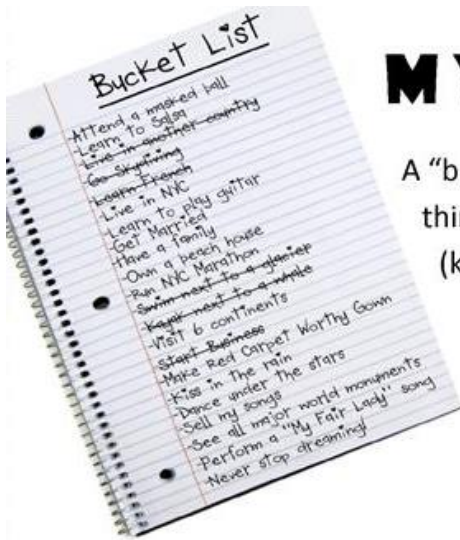 Bucket List
-Attend a masked ball
-Learn to Salsa
-Live in another country
-Go Skydiving
-Learn French
-Live in NYC
-Learn to play guitar
-Get Married
-Have a family
-Own a beach house
-Run NYC Marathon
-Swim next to a glacier
-Kayak next to a whale
-Visit 6 continents
-Start Business
-Make Red Carpet Worthy Gown
-Kiss in the rain
-Dance under the stars
-Sell my songs
-See all major world monuments
-Perform a "My Fair Lady" song
-Never stop dreaming!
MY
A “b
thin
(k